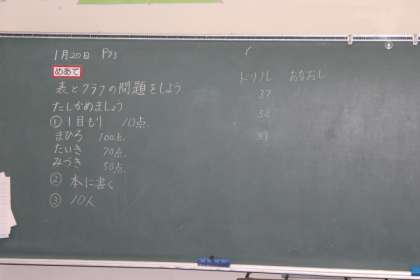 1月20日 P93
めあて
表とグラフの問題をしよう
たしかめましょう
① 1目もり 10点
まひろ 100点
たいき 70点
みづき 50点
② 本に書く
③ 10人
ドリル おなおし
37